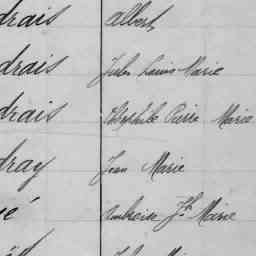 drais Albert
drais Jules Louis Marie
drais Théophile Pierre Marie
dray Jean Marie
é Ambroise Jh Marie